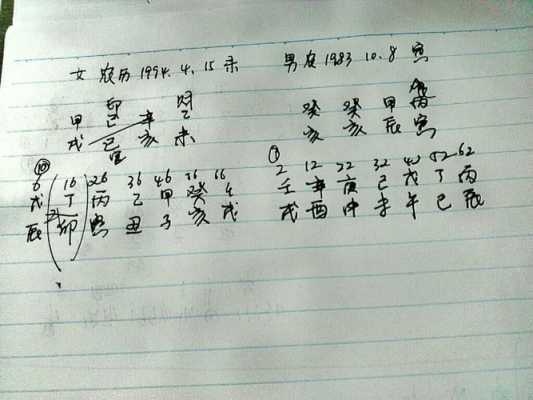 女 农历1994.4.15未 男农1983 10.8 寅
卯 财
甲 己 辛 乙 癸 癸 甲 丙
戌 巳 亥 未 亥 亥 辰 寅
宫
6 16 26 36 46 56 66 2 12 22 32 42 52 62
戊 丁 丙 乙 甲 癸 壬 辛 庚 己 戊 丁 丙
辰 卯 寅 丑 子 亥 戌 戌 酉 申 未 午 巳 辰